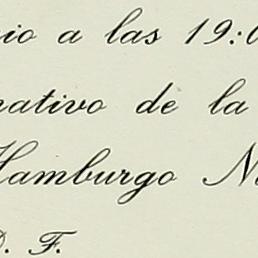 io a las 19:0
nativo de la
Hamburgo N
D. F.